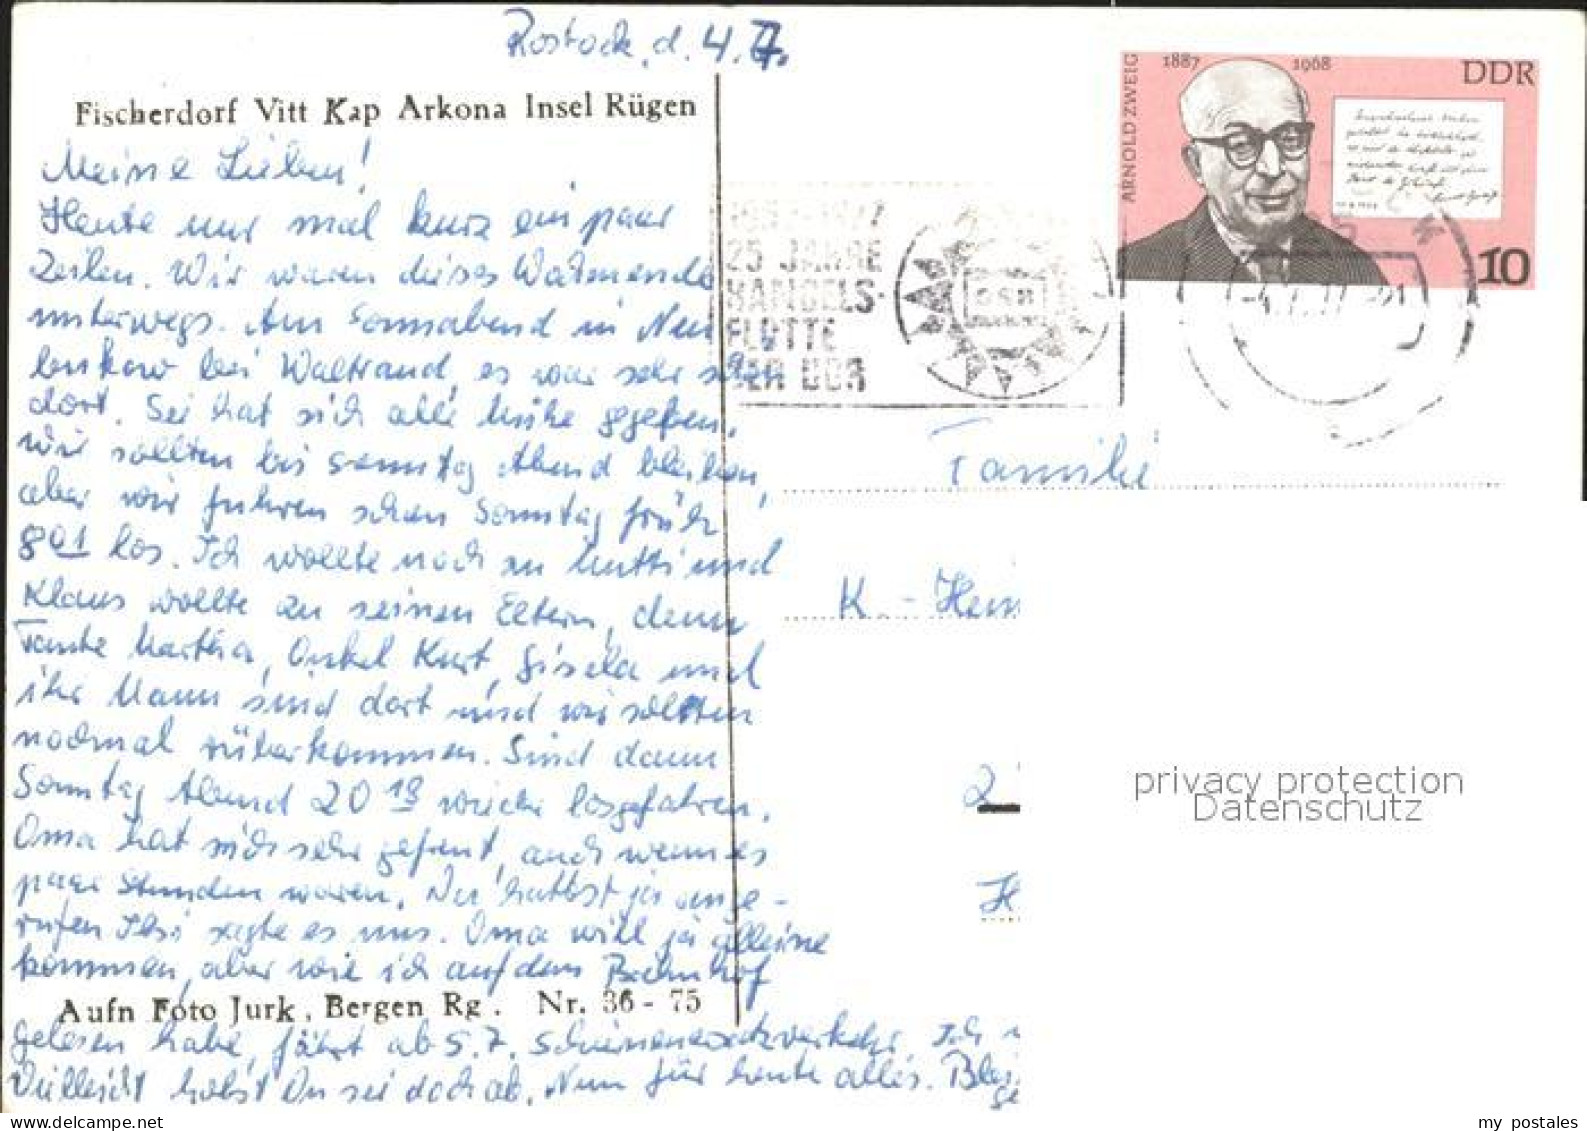 Rostock, d. 4.7.
Fischerdorf Vitt Kap Arkona Insel Rügen
Meine Lieben!
Heute nur mal kurz ein paar
Zeilen. Wir waren dieses Wochenende
unterwegs. Am Sonnabend in Neu
bei Waltraud, es war sehr schön
dort. Sei hat sich alle Mühe gegeben,
wir sollten bis Sonntag Abend bleiben,
aber wir fuhren schon Sonntag früh
801 los. Ich wollte noch zu Mutti und
Klaus wollte zu seinen Eltern, denn
Tante Martha, Onkel Kurt, Gisela und
ihr Mann sind dort und wir sollten
nochmal rüberkommen. Sind dann
Sonntag Abend 20 18 wieder losgefahren.
Oma hat sich sehr gefreut, auch wenn es
paar Stunden waren. Du hattest ja ange-
rufen sagte es uns. Oma will ja alleine
kommen, aber wie ich auf dem Bahnhof
Aufn Foto Jurk, Bergen Rg. Nr. 36 - 75
gelesen habe, fährt ab 5.7. Schienenersatzverkehr. Ich
Vielleicht holst Du sie doch ab. Nun für heute alles.
ARNOLD ZWEIG
1887 1968
DDR
10
1952-1977
25 JAHRE
HANDELS-
FLOTTE
DER DDR
DSR
-4.7.77-21
Familie
K.-Hein
2
H
privacy protection
Datenschutz
www.delcampe.net
my_postales